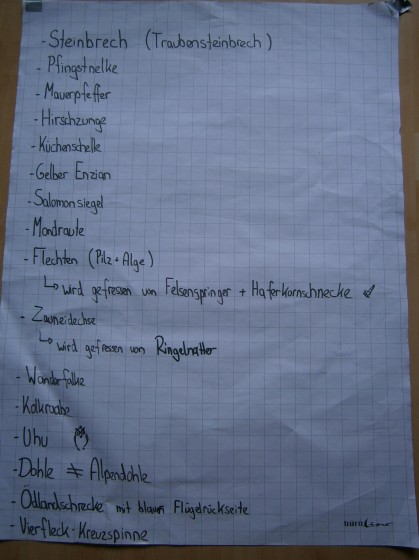 - Steinbrech (Traubensteinbrech)
- Pfingstnelke
- Mauerpfeffer
- Hirschzunge
- Küchenschelle
- Gelber Enzian
- Salomonsiegel
- Mondraute
- Flechten (Pilz + Alge)
↳ wird gefressen von Felsenspringer + Haferkornschnecke
- Zauneidechse
↳ wird gefressen von Ringelnatter
- Wanderfalke
- Kolkrabe
- Uhu
- Dohle ≠ Alpendohle
- Ödlandschrecke mit blauer Flügelrückseite
- Vierfleck-Kreuzspinne